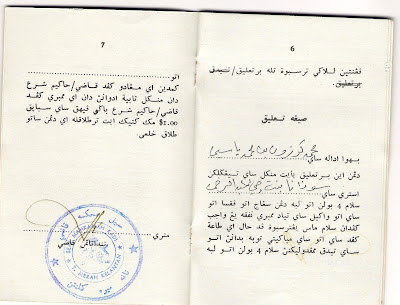 6
ڤڠنتين للاكي ترسبوة تله برتعليق/تيدق
برتعليق.
صيغه تعليق
بهوا اداله ساي محمد بن محمد
دڠن اين برتعليق يأيت منكل ساي تيڠݢلكن
استري ساي بنت
سلام 4 بولن اتو لبه دڠن سڠاج اتو ڤقسا اتو
ساي اتو واكيل ساي تياد ممبري نفقه يڠ واجب
كڤدان سلام ماس يڠ ترسبوة ڤد حال اي طاعة
كڤد ساي اتو ساي مڽاكيتي توبه بدانڽ اتو
ساي تيدق ممڤدوليكنڽ سلام 4 بولن اتو لبه
7
اتو
كمدين اي مڠادو كڤد قاضي/حاكيم شرع
دان منكل ثابية ادوانڽ دان اي ممبري كڤد
قاضي/حاكيم شرع باݢي ڤيهق ساي سباڽق
$1.00 مك كتيك ايت ترطلاقله اي دڠن ساتو
طلاق خلعي.
متري
تنداتاڠن قاضي
KELANTAN